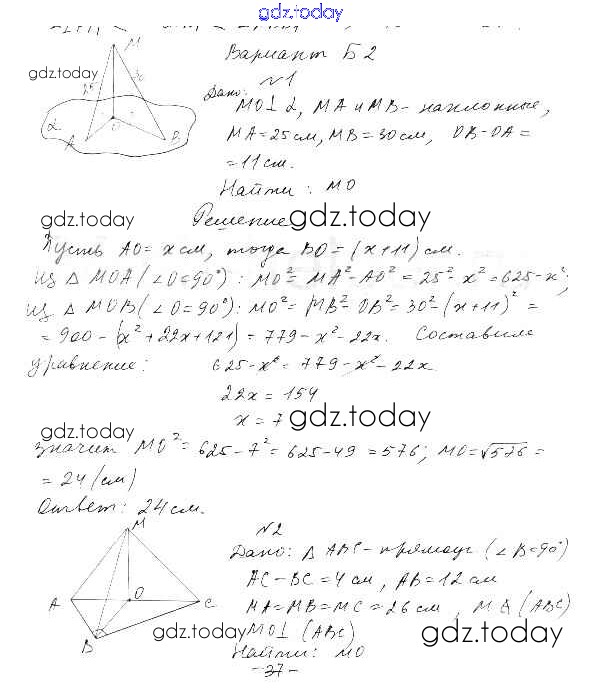 gdz.today
Вариант Б2
gdz.today
M
25
30
α
O
A
B
№1
Дано:
MO⊥α, MA и MB - наклонные,
MA=25см, MB=30см, OB-OA=
=11см.
Найти: MO
gdz.today
Решение
gdz.today
Пусть AO=x см, тогда BO=(x+11) см.
Из △MOA (∠O=90°): MO²=MA²-AO²=25²-x²=625-x²;
из △MOB (∠O=90°): MO²=MB²-OB²=30²-(x+11)²=
=900-(x²+22x+121)=779-x²-22x. Составим
уравнение: 625-x²=779-x²-22x
gdz.today
22x=154
x=7
gdz.today
gdz.today
значит MO²=625-7²=625-49=576; MO=√576=
=24 (см)
Ответ: 24см.
M
A
O
C
B
№2
Дано: △ABC-прямоуг (∠B=90°)
AC-BC=4см, AB=12см
MA=MB=MC=26см, M∉(ABC)
gdz.today
MO⊥(ABC)
gdz.today
Найти: MO
-37-